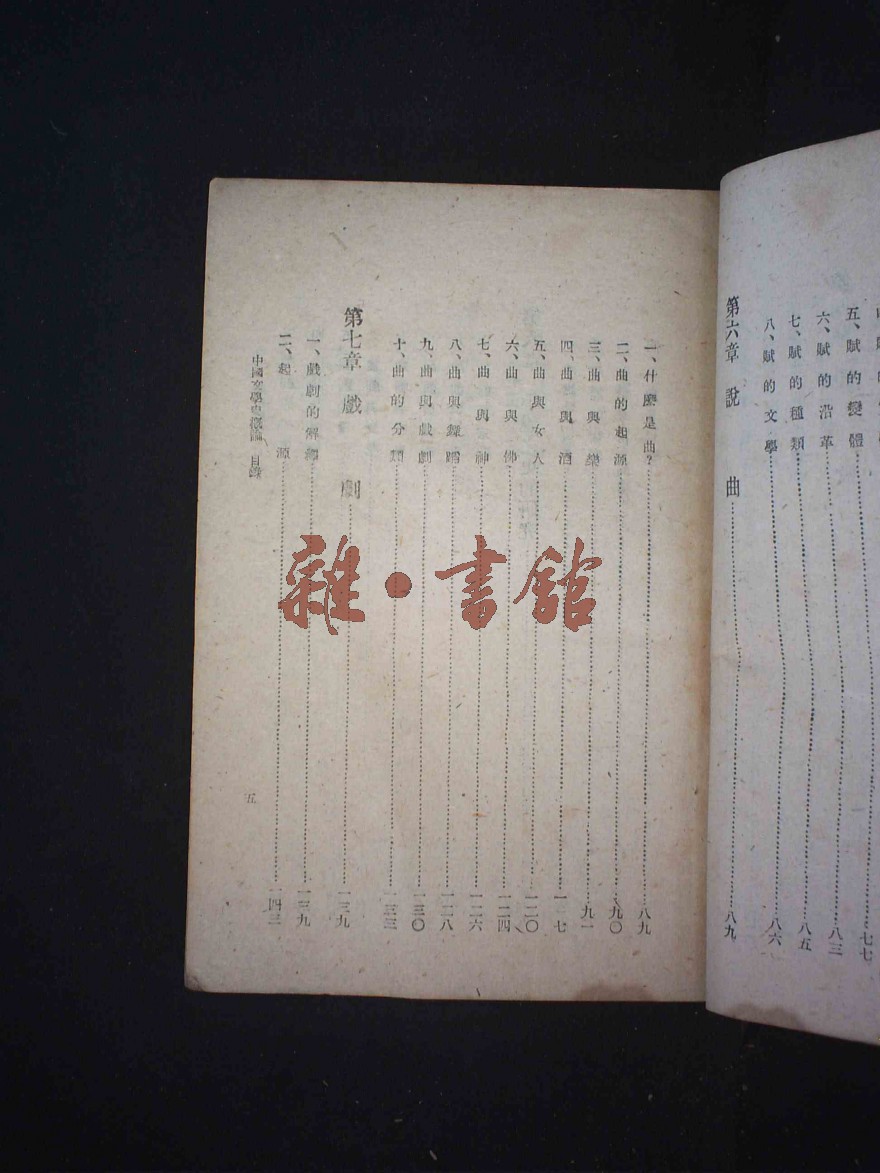 五、賦的變體……七七
六、賦的沿革……八三
七、賦的種類……八五
八、賦的文學……八六
第六章 說 曲……八九
一、什麼是曲?……八九
二、曲的起源……九〇
三、曲與樂……九一
四、曲與酒……一一七
五、曲與女人……一二〇
六、曲與佛……一二四
七、曲與神……一二六
八、曲與嫖賭……一二八
九、曲與戲劇……一三〇
十、曲的分類……一三三
第七章 戲 劇……一三九
一、戲劇的解釋……一三九
二、起源……一四三
中國文學史概論 目錄
五
雜·書館